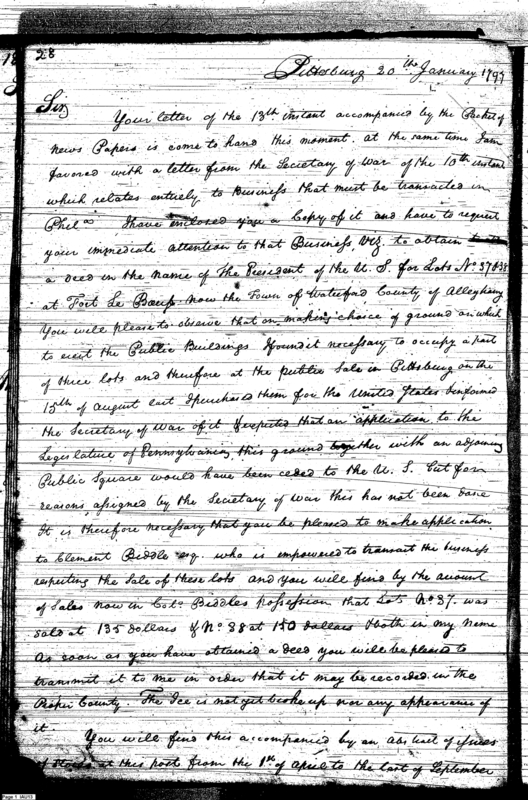 28
Pittsburg 20th January 1797
Sir
Your letter of the 13th instant accompanied by the Packet of
News Papers is come to hand this moment. at the same time I am
favored with a letter from the Secretary of War of the 10th instant
which relates entirely to Business that must be transacted in
Phila. I have enclosed you a Copy of it and have to request
your immediate attention to that Business, Viz. to obtain
a deed in the name of The President of the U. S. for Lots No. 37 & 38
at Fort Le Bœuf now the Town of Waterford County of Allegheny
You will please to observe that on making choice of ground on which
to erect the Public Buildings I found it necessary to occupy a part
of three lots and therefore at the public Sale in Pittsburg on the
15th of August last I purchased them for the United States & informed
the Secretary of War of it & expected that an application to the
Legislature of Pennsylvania, this ground together with an adjoining
Public Square would have been ceded to the U. S. but for
reasons assigned by the Secretary of War this has not been done
It is therefore necessary that you be pleased to make application
to Clement Biddle esq. who is empowered to transact the business
respecting the Sale of these lots and you will find by the account
of Sales now in Colo. Biddles possession that Lot No. 37. was
sold at 135 dollars & No. 38 at 150 dollars & both in my name
As soon as you have obtained a deed you will be pleased to
transmit it to me in order that it may be recorded in the
Proper County. The Ice is not yet broke up nor any appearance of
it.
You will find this accompanied by an abstract of issues
of at this post from the 1st of April to the last of September
Page 1